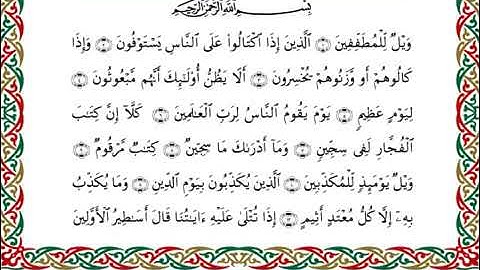 بِسْمِ اللَّهِ الرَّحْمَٰنِ الرَّحِيمِ
وَيْلٌ لِّلْمُطَفِّفِينَ ۝١ ٱلَّذِينَ إِذَا ٱكْتَالُوا۟ عَلَى ٱلنَّاسِ يَسْتَوْفُونَ ۝٢ وَإِذَا
كَالُوهُمْ أَو وَّزَنُوهُمْ يُخْسِرُونَ ۝٣ أَلَا يَظُنُّ أُو۟لَٰٓئِكَ أَنَّهُم مَّبْعُوثُونَ ۝٤
لِيَوْمٍ عَظِيمٍ ۝٥ يَوْمَ يَقُومُ ٱلنَّاسُ لِرَبِّ ٱلْعَٰلَمِينَ ۝٦ كَلَّآ إِنَّ كِتَٰبَ
ٱلْفُجَّارِ لَفِى سِجِّينٍ ۝٧ وَمَآ أَدْرَىٰكَ مَا سِجِّينٌ ۝٨ كِتَٰبٌ مَّرْقُومٌ ۝٩
وَيْلٌ يَوْمَئِذٍ لِّلْمُكَذِّبِينَ ۝١٠ ٱلَّذِينَ يُكَذِّبُونَ بِيَوْمِ ٱلدِّينِ ۝١١ وَمَا يُكَذِّبُ
بِهِۦٓ إِلَّا كُلُّ مُعْتَدٍ أَثِيمٍ ۝١٢ إِذَا تُتْلَىٰ عَلَيْهِ ءَايَٰتُنَا قَالَ أَسَٰطِيرُ ٱلْأَوَّلِينَ